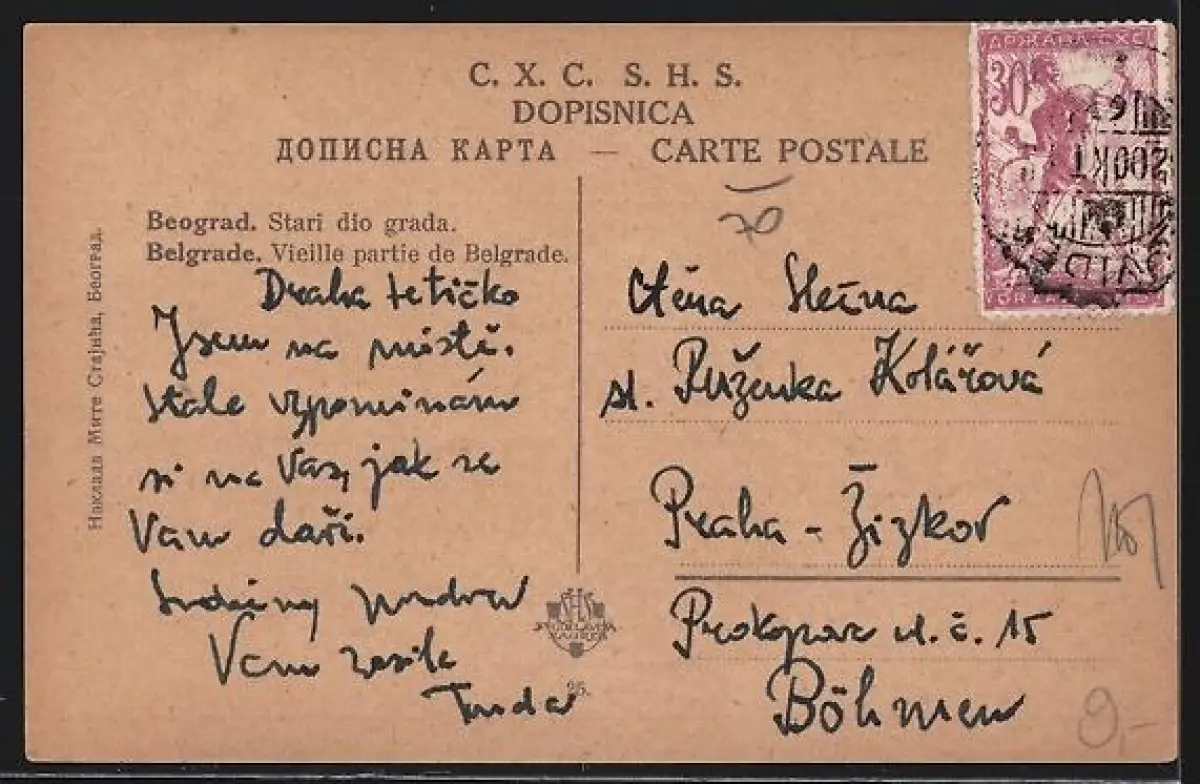 С. Х. С. S. H. S.
DOPISNICA
ДОПИСНА КАРТА — CARTE POSTALE
30
20 OKT
Beograd. Stari dio grada.
Belgrade. Vieille partie de Belgrade.
Наклада Мите Стајића, Београд.
Draha tetičko
Jsem na místě.
stale vzpomínám
si na Vas, jak se
Vam daři.
Srdečny pozdrav
Vam zasila
Ctěna Slečna
sl. Puženka Kolářová
Praha - Žizkov
Prokopova ul. č. 15
Böhmen
9,-